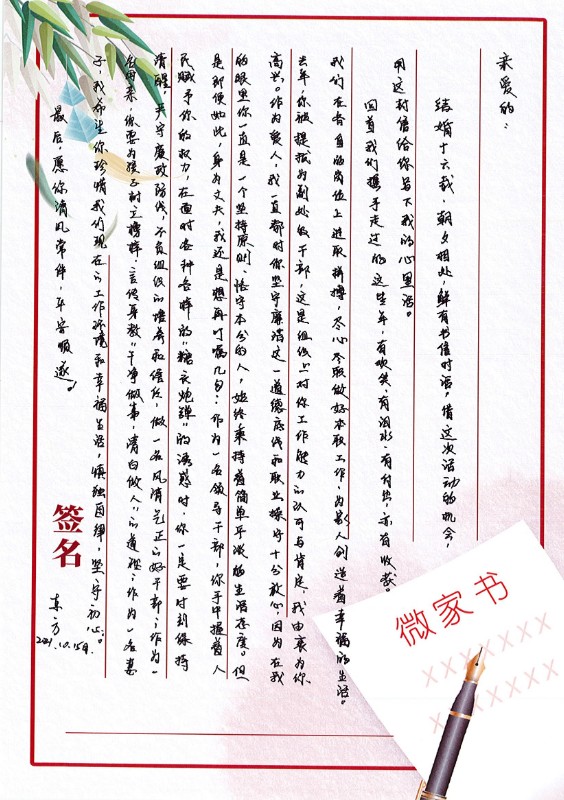 亲爱的：
结婚十六载，朝夕相处，鲜有书信对话，借这次活动的机会，
用这封信给你写下我的心里话。
回首我们携手走过的这些年，有欢笑、有泪水，有付出，亦有收获。
我们在各自的岗位上进取拼搏，尽心尽职做好本职工作，为家人创造着幸福的生活。
去年，你被提拔为副处级干部，这是组织上对你工作能力的认可与肯定，我由衷为你
高兴。作为爱人，我一直都对你坚守廉洁这一道德底线和职业操守十分放心，因为在我
的眼里你一直是一个坚持原则、恪守本分的人，始终秉持着简单平淡的生活态度。但
是即便如此，身为丈夫，我还是想再叮嘱几句：作为一名领导干部，你手中握着人
民赋予你的权力，在面对各种各样的“糖衣炮弹”的诱惑时，你一定要时刻保持
清醒，共守廉政防线，不负组织的培养和信任，做一名风清气正的好干部；作为一
名母亲，你要为孩子树立榜样，言传身教“干净做事，清白做人”的道理；作为一名妻
子，我希望你珍惜我们现在的工作环境和幸福生活，慎独自律，坚守初心。
最后，愿你清风常伴，平安顺遂。
签名
东方
2021.10.15日
微家书
XXXXXXX
XXXXXXX